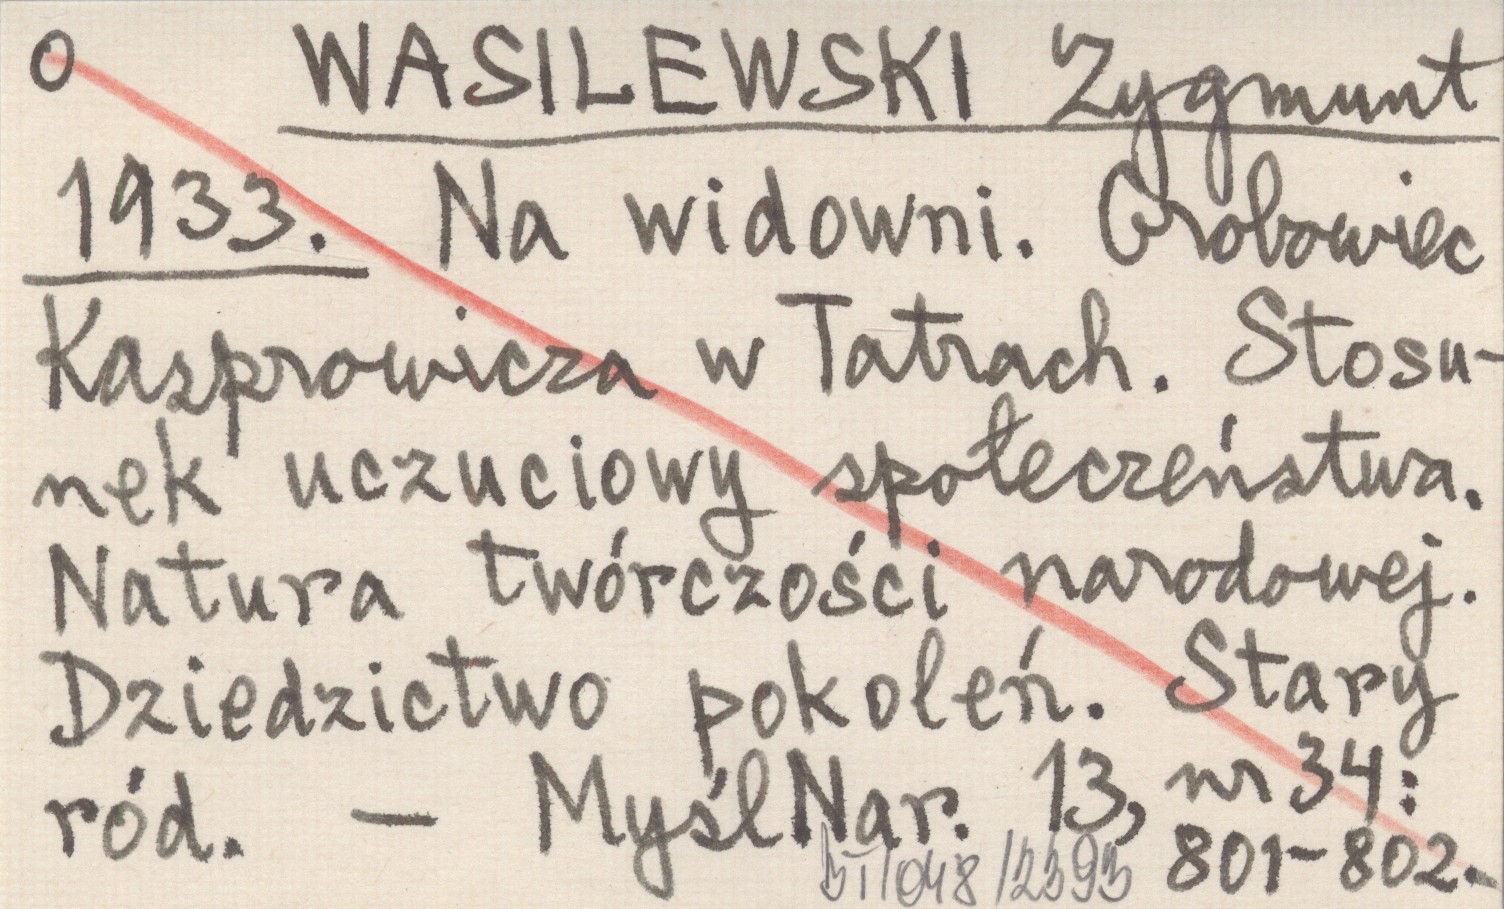 O WASILEWSKI Zygmunt
1933. Na widowni. Grobowiec
Kasprowicza w Tatrach. Stosu-
nęk uczuciowy społeczeństwa.
Natura twórczości narodowej.
Dziedzictwo pokoleń. Stary
ród. – MyślNar. 13, nr 34:
801-802.